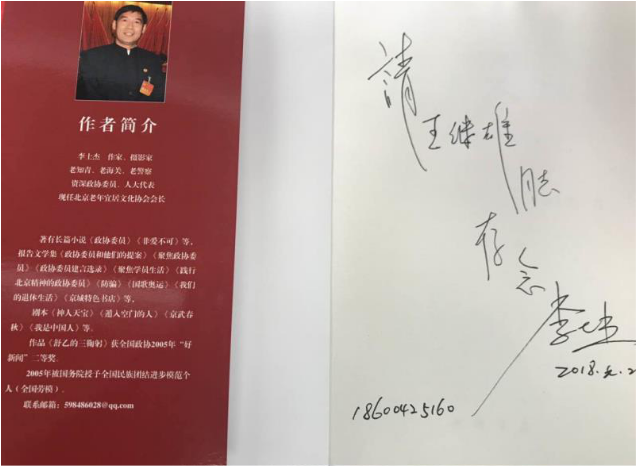 作者简介
李士杰 作家、摄影家
老知青、老海关、老警察
资深政协委员、人大代表
现任北京老年宜居文化协会会长
著有长篇小说《政协委员》《非爱不可》等，
报告文学集《政协委员和他们的提案》《聚焦政协委
员》《政协委员建言选录》《聚焦学生活》《践行
北京精神的政协委员》《防骗》《国歌奥运》《我们
的退休生活》《京城特色书店》等，
剧本《神人天宝》《遁入空门的人》《京武春
秋》《我是中国人》等。
作品《舒乙的三鞠躬》获全国政协2005年“好
新闻”二等奖。
2005年被国务院授予全国民族团结进步模范个
人（全国劳模）。
联系邮箱：598486028@qq.com
请
王继雄
同志
存念
李士杰
2018.元.2
18600425160